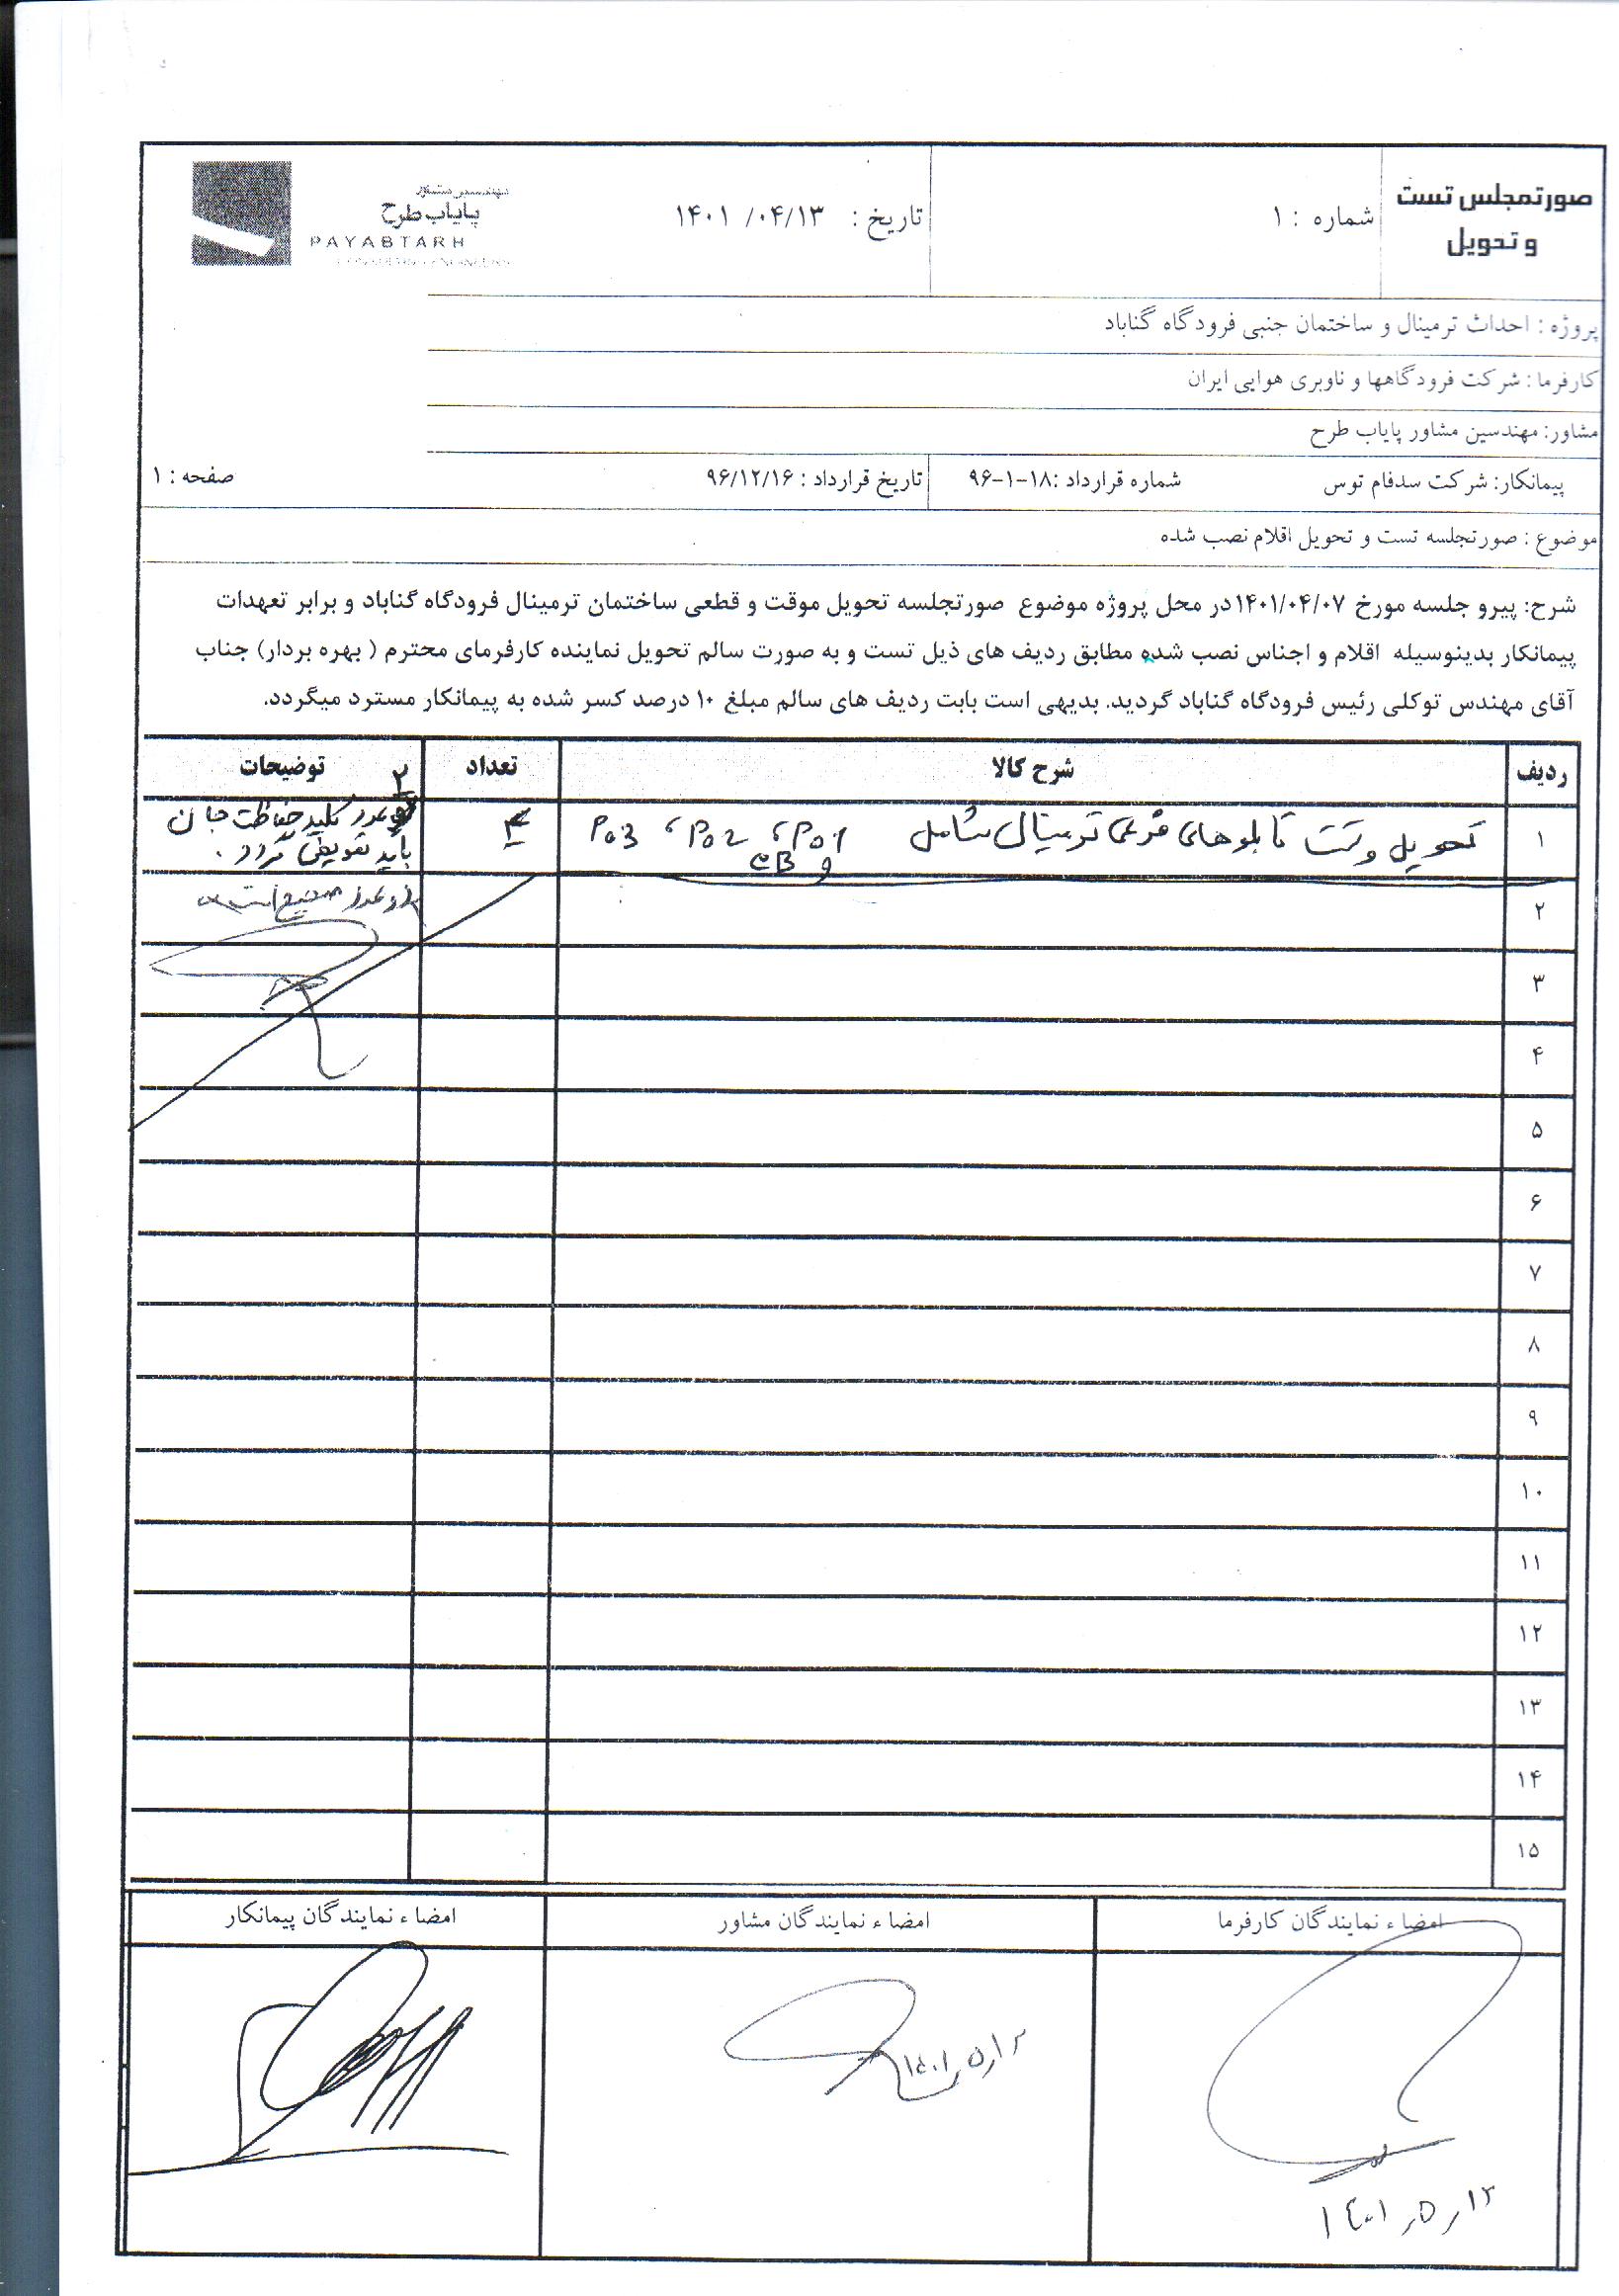 صورتمجلس تست
و تحویل
شماره : ۱
تاریخ : ۱۴۰۱ /۰۴/۱۳
مهندسین مشاور
پایاب طرح
PAYABTARH
CONSULTING ENGINEERS
پروژه : احداث ترمینال و ساختمان جنبی فرودگاه گناباد
کارفرما : شرکت فرودگاهها و ناوبری هوایی ایران
مشاور: مهندسین مشاور پایاب طرح
پیمانکار: شرکت سدفام توس شماره قرارداد :۱۸-۱-۹۶ تاریخ قرارداد : ۹۶/۱۲/۱۶ صفحه : ۱
موضوع : صورتجلسه تست و تحویل اقلام نصب شده
شرح: پیرو جلسه مورخ ۱۴۰۱/۰۴/۰۷در محل پروژه موضوع صورتجلسه تحویل موقت و قطعی ساختمان ترمینال فرودگاه گناباد و برابر تعهدات
پیمانکار بدینوسیله اقلام و اجناس نصب شده مطابق ردیف های ذیل تست و به صورت سالم تحویل نماینده کارفرمای محترم ( بهره بردار) جناب
آقای مهندس توکلی رئیس فرودگاه گناباد گردید. بدیهی است بابت ردیف های سالم مبلغ ۱۰ درصد کسر شده به پیمانکار مسترد میگردد.
ردیف شرح کالا تعداد توضیحات
۱ تحویل و تست تابلوهای فرعی ترمینال شامل P01 ، P02 ، P03 ۴ ۲ عدد کلید حفاظت جان
و باید تعویض گردد .
۲ دو عدد صحیح است
۳
۴
۵
۶
۷
۸
۹
۱۰
۱۱
۱۲
۱۳
۱۴
۱۵
امضاء نمایندگان کارفرما امضاء نمایندگان مشاور امضاء نمایندگان پیمانکار